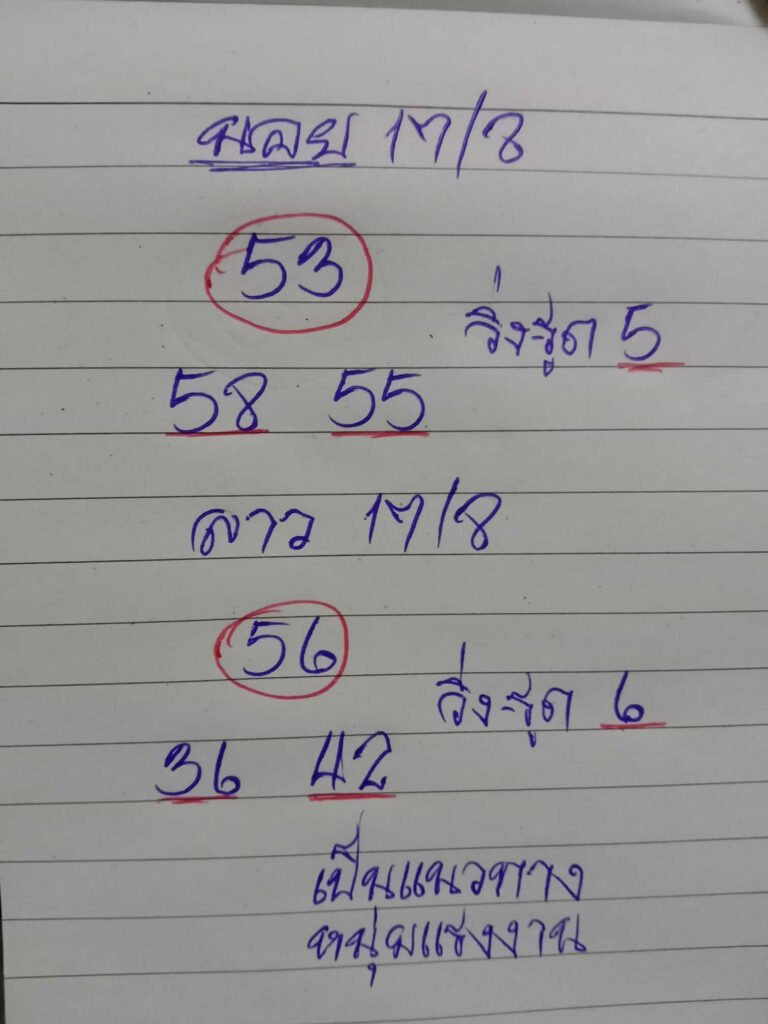 นอย 17/8
53
วิ่ง-รูด 5
58 55
ลาว 17/8
56
วิ่ง-รูด 6
36 42
เป็นแนวทาง
หนุ่มแรงงาน